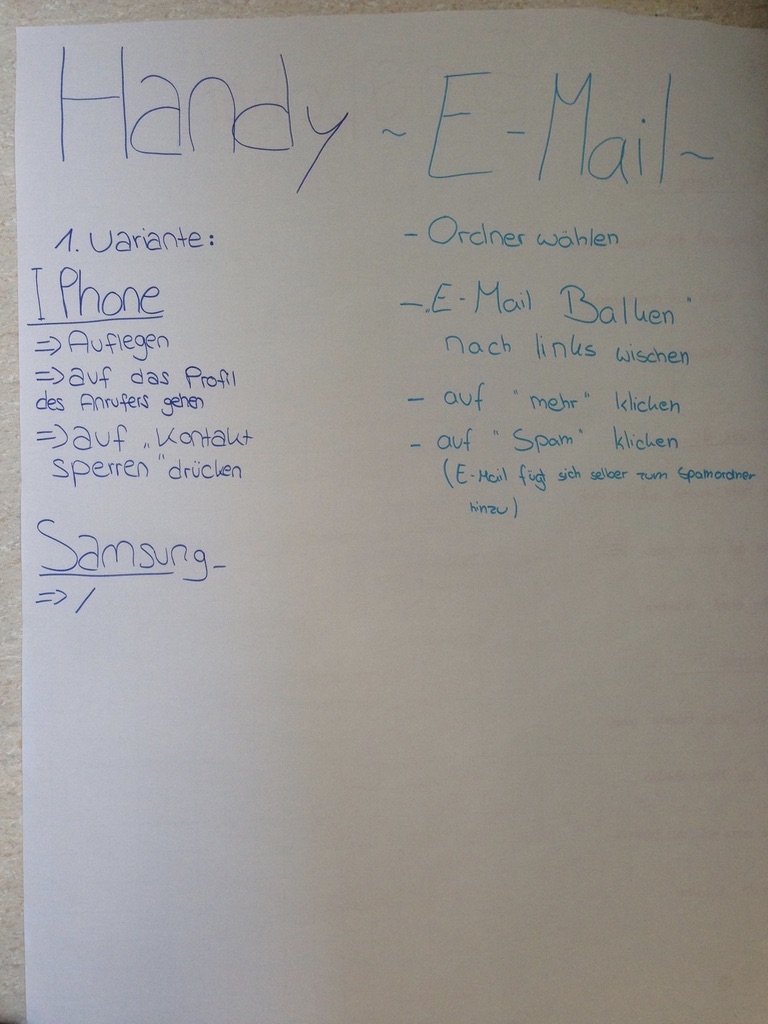 Handy
1. Variante:
I Phone
=> Auflegen
=> auf das Profil
des Anrufers gehen
=> auf „Kontakt
sperren" drücken
Samsung_
=> /
~ E-Mail ~
- Ordner wählen
- „E-Mail Balken"
nach links wischen
- auf "mehr" klicken
- auf "Spam" klicken
(E-Mail fügt sich selber zum Spamordner
hinzu)